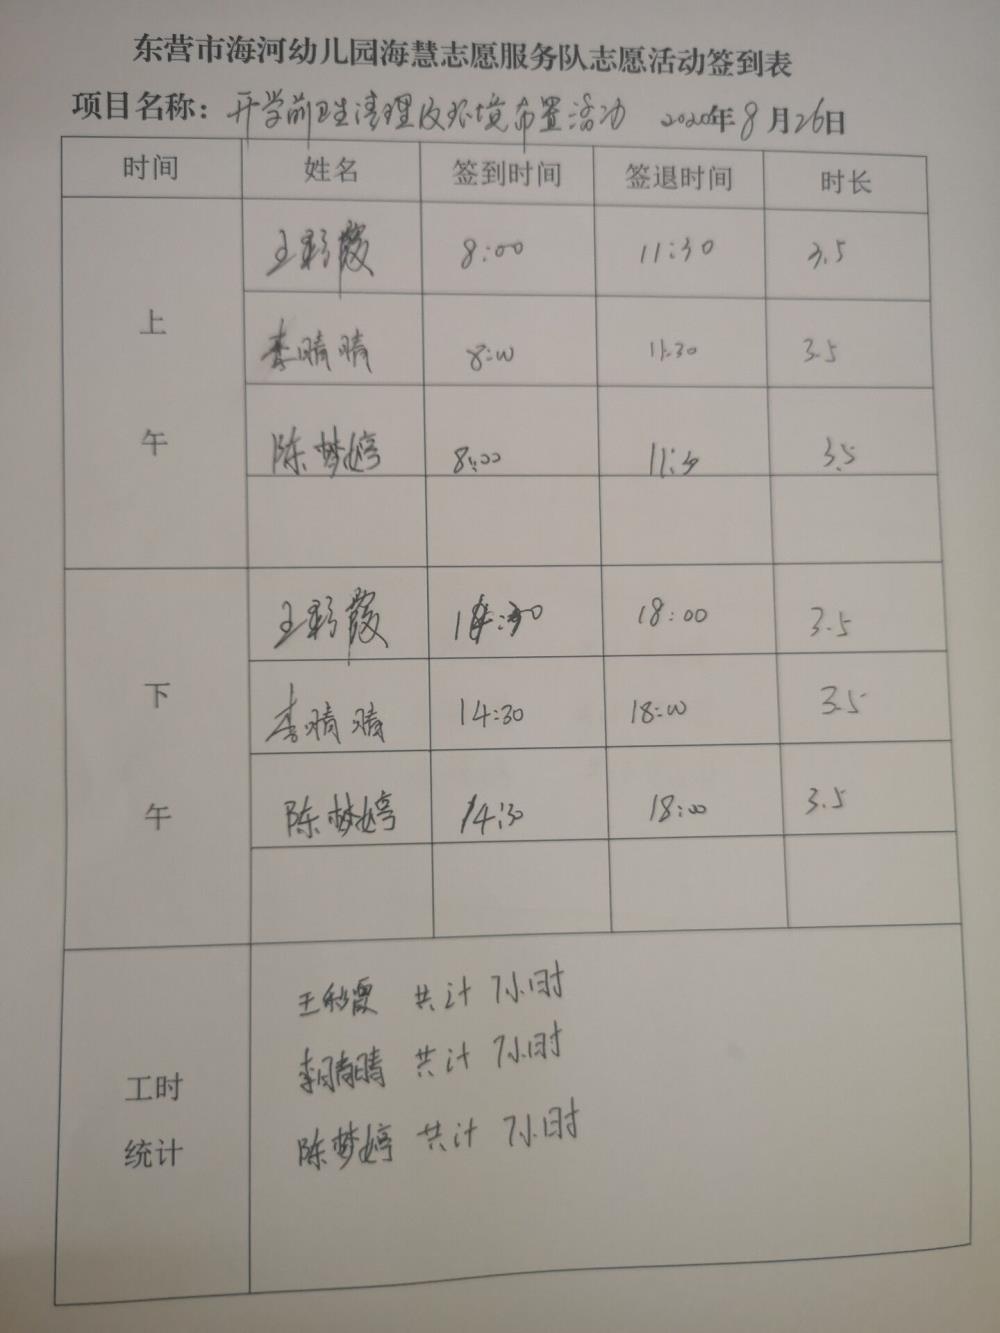 东营市海河幼儿园海慧志愿服务队志愿活动签到表
项目名称：开学前卫生清理及环境布置活动 2020年8月26日
时间 姓名 签到时间 签退时间 时长
上午
王彩霞 8:00 11:30 3.5
李晴晴 8:00 11:30 3.5
陈梦婷 8:00 11:30 3.5
下午
王彩霞 14:30 18:00 3.5
李晴晴 14:30 18:00 3.5
陈梦婷 14:30 18:00 3.5
工时统计
王彩霞 共计 7小时
李晴晴 共计 7小时
陈梦婷 共计 7小时